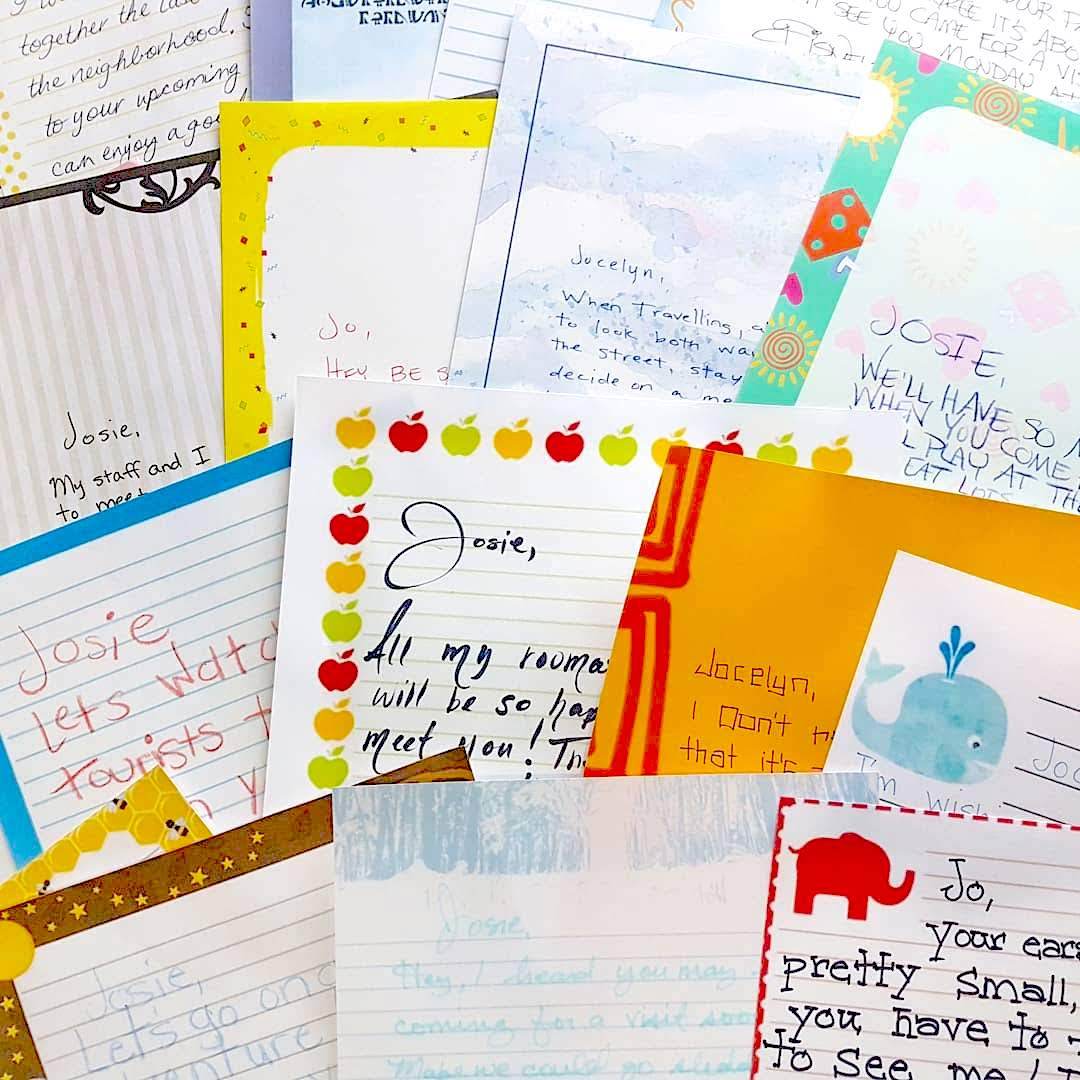 together the last
the neighborhood.
to your upcoming
can enjoy a good
OUR
IT'S ABO
YOU CAME FOR A VIS
SEE YOU MONDAY AT
Jo,
HEY, BE S
Jocelyn,
When Travelling, a
to look both wa
the street, stay
decide on a me
JOSIE,
WE'LL HAVE SO M
WHEN YOU COME
PLAY AT TH
EAT LOTS
Josie,
My staff and I
to meet
Josie
Lets watc
tourists t
Josie,
All my rooma
will be so hap
meet you! Th
Jocelyn,
I Don't
that it's
Joc
I'm Wishi
Josie,
Let's go on
Josie,
Hey, I heard you may
coming for a visit soo
Maybe we could go
Jo,
Your ears
pretty small,
you have to
to see me!